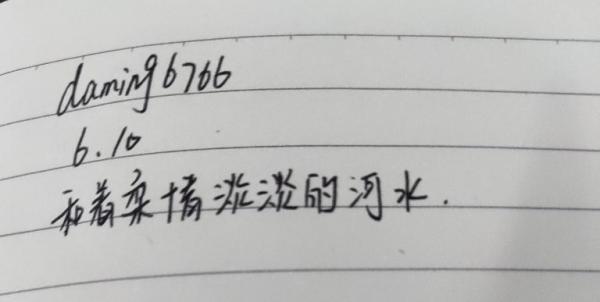 daming6766
6.10
和着柔情淡淡的河水.